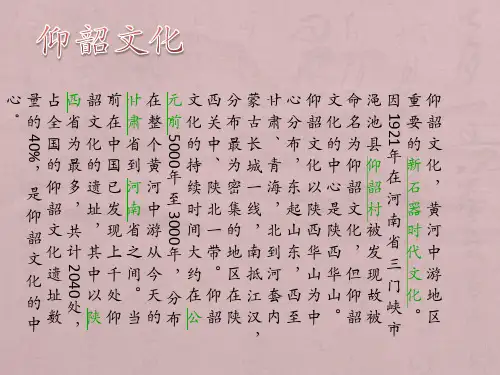 仰韶文化
仰韶文化，黄河中游地区
重要的新石器时代文化。
因1921年在河南省三门峡市
渑池县仰韶村被发现故被
命名为仰韶文化，但仰韶
文化的中心是陕西华山。
仰韶文化以陕西华山为中
心分布，东起山东，西至
甘肃、青海，北到河套内
蒙古长城一线，南抵江汉，
分布最为密集的地区在陕
西关中、陕北一带。仰韶
文化的持续时间大约在公
元前5000年至3000年，分布
在整个黄河中游从今天的
甘肃省到河南省之间。当
前在中国已发现上千处仰
韶文化的遗址，其中以陕
西省为最多，共计2040处，
占全国的仰韶文化遗址数
量的40%，是仰韶文化的中
心。